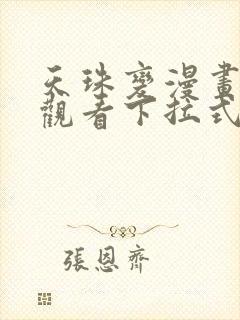 天珠變漫畫
觀看下拉式
張恩齊